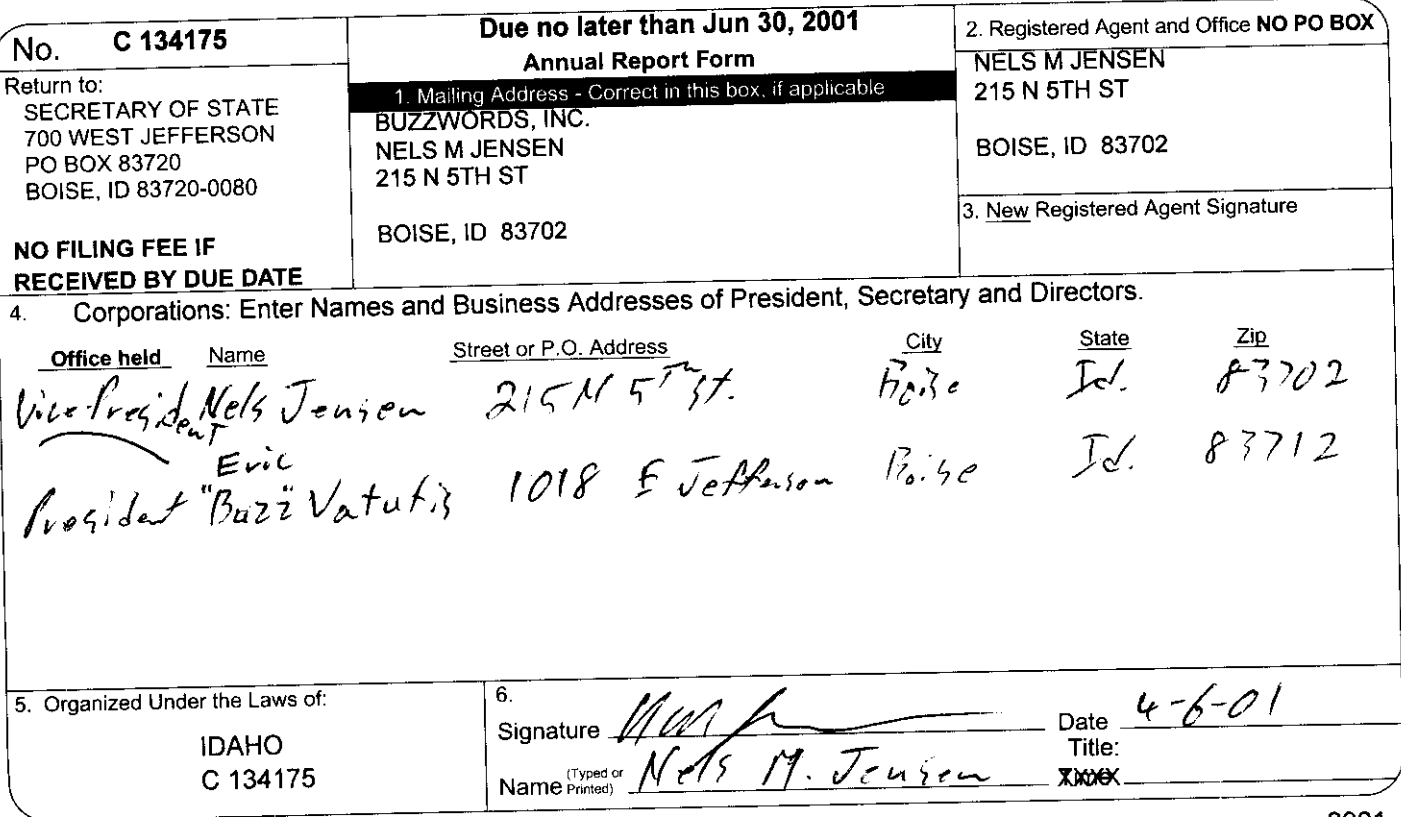 No. C 134175
Return to:
SECRETARY OF STATE
700 WEST JEFFERSON
PO BOX 83720
BOISE, ID 83720-0080
NO FILING FEE IF
RECEIVED BY DUE DATE
Due no later than Jun 30, 2001
Annual Report Form
1. Mailing Address - Correct in this box, if applicable
BUZZWORDS, INC.
NELS M JENSEN
215 N 5TH ST
BOISE, ID 83702
2. Registered Agent and Office NO PO BOX
NELS M JENSEN
215 N 5TH ST
BOISE, ID 83702
3. New Registered Agent Signature
4. Corporations: Enter Names and Business Addresses of President, Secretary and Directors.
Office held Name Street or P.O. Address City State Zip
Vice-President Nels Jensen 215 N 5TH St. Boise Id. 83702
Eric
President "Buzz" Vatutis 1018 E Jefferson Boise Id. 83712
5. Organized Under the Laws of:
IDAHO
C 134175
6.
Signature
Date 4-6-01
Name (Typed or Printed) Nels M. Jensen
Title: